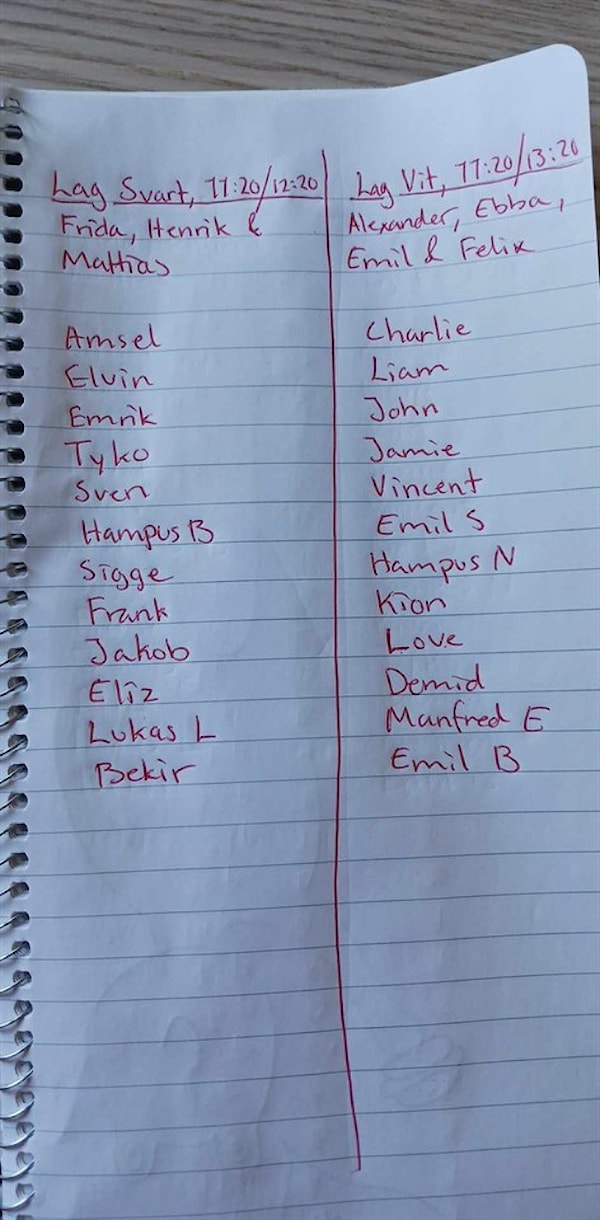 Lag Svart, 11:20/12:20
Frida, Henrik &
Mattias
Amsel
Elvin
Emrik
Tyko
Sven
Hampus B
Sigge
Frank
Jakob
Eliz
Lukas L
Bekir
Lag Vit, 11:20/13:20
Alexander, Ebba,
Emil & Felix
Charlie
Liam
John
Jamie
Vincent
Emil S
Hampus N
Kion
Love
Demid
Manfred E
Emil B